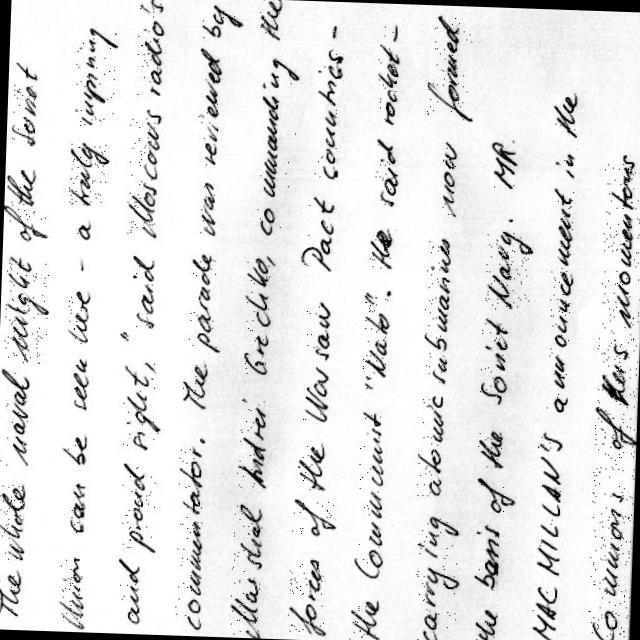 The whole naval might of the Soviet
Union can be seen here - a truly inspiring
and proud sight," said Moscow's radio's
commentator. The parade was reviewed by
Marshal Andrei Grechko, commanding the
forces of the Warsaw Pact countries -
the Communist "Nato". He said rocket -
carrying atomic submarines now formed
the basis of the Soviet Navy. MR
MAC MILLAN'S announcement in the
Commons of this momentous